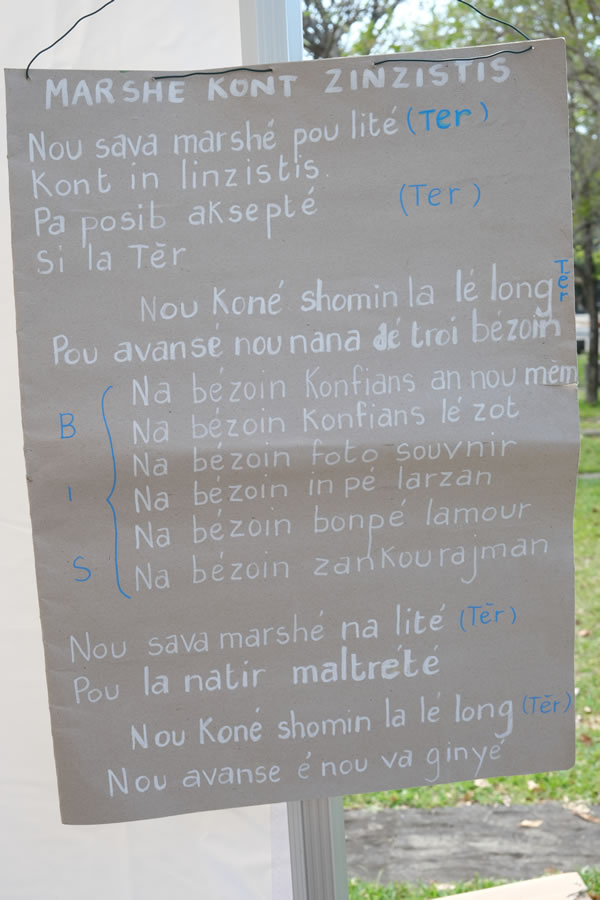 MARSHE KONT ZINZISTIS
Nou sava marshé pou lité (Ter)
Kont in linzistis.
Pa posib aksepté (Ter)
Si la Tēr
Nou Koné shomin la lé long Ter
Pou avansé nou nana dé troi bézoin
Na bézoin Konfians an nou mèm
Na bézoin Konfians lé zot
Na bézoin foto souvnir
Na bézoin in pé larzan
Na bézoin bonpé lamour
Na bézoin zankourajman
BIS
Nou sava marshé na lité (Tēr)
Pou la natir maltrété
Nou Koné shomin la lé long (Tēr)
Nou avanse é nou va ginyé